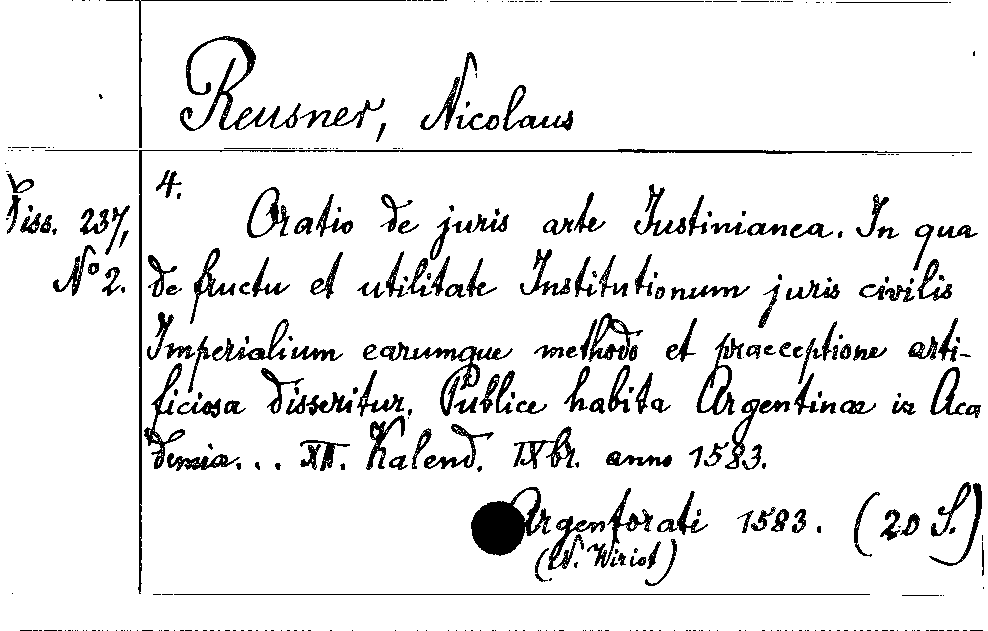 Reusner, Nicolaus
4.
Diss. 237, Oratio de juris arte Iustinianea. In qua
Nº 2. de fructu et utilitate Institutionum juris civilis
Imperialium earumque methodo et praeceptione arti-
ficiosa disseritur. Publice habita Argentinae in Aca
demia... XII. Kalend. IXbr. anno 1583.
Argentorati 1583. (20 S.)
(N. Wiriot)